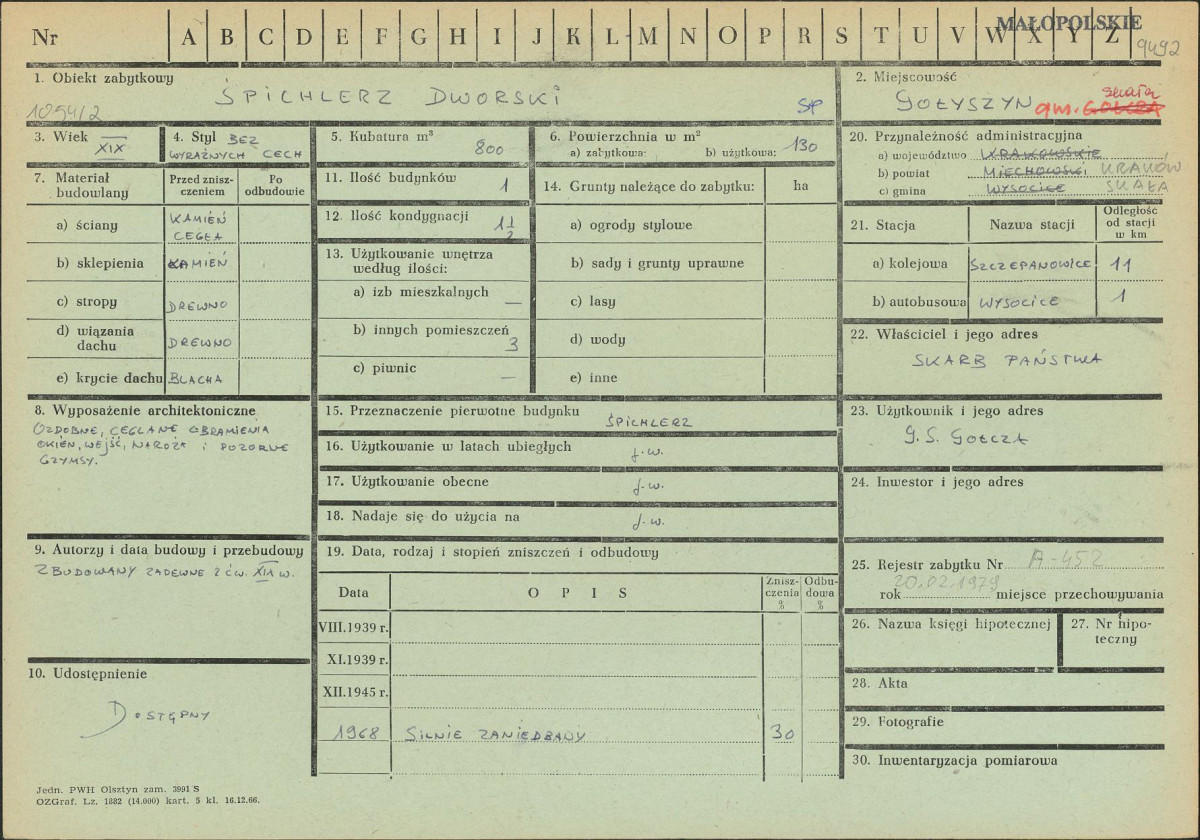 MAŁOPOLSKIE
Nr A B C D E F G H I J K L M N O P R S T U V W X Y Z
9492
1. Obiekt zabytkowy
ŚPICHLERZ DWORSKI
1054/2
2. Miejscowość
GOŁYSZYN gm. GOŁCZA
Skała
3. Wiek XIX
4. Styl BEZ
WYRAŹNYCH CECH
5. Kubatura m³
800
6. Powierzchnia w m²
a) zabytkowa: b) użytkowa: 130
7. Materiał
budowlany
Przed znisz-
czeniem
Po
odbudowie
a) ściany KAMIEŃ
CEGŁA
b) sklepienia KAMIEŃ
c) stropy DREWNO
d) wiązania
dachu DREWNO
e) krycie dachu BLACHA
8. Wyposażenie architektoniczne
OZDOBNE, CEGLANE OBRAMIENIA
OKIEN, WEJŚĆ, NAROŻA I POZORNE
GZYMSY.
9. Autorzy i data budowy i przebudowy
ZBUDOWANY ZAPEWNE 2 ĆW. XIX W.
10. Udostępnienie
DOSTĘPNY
11. Ilość budynków
1
12. Ilość kondygnacji
1 1/2
13. Użytkowanie wnętrza
według ilości:
a) izb mieszkalnych
—
b) innych pomieszczeń
3
c) piwnic
—
14. Grunty należące do zabytku: ha
a) ogrody stylowe
b) sady i grunty uprawne
c) lasy
d) wody
e) inne
15. Przeznaczenie pierwotne budynku
ŚPICHLERZ
16. Użytkowanie w latach ubiegłych
j.w.
17. Użytkowanie obecne
j.w.
18. Nadaje się do użycia na
j.w.
19. Data, rodzaj i stopień zniszczeń i odbudowy
Data OPIS
Znisz-
czenia
%
Odbu-
dowa
%
VIII.1939 r.
XI.1939 r.
XII.1945 r.
1968 SILNIE ZANIEDBANY 30
20. Przynależność administracyjna
a) województwo KRAKOWSKIE
b) powiat MIECHOWSKI KRAKÓW
c) gmina WYSOCICE SKAŁA
21. Stacja Nazwa stacji
Odległość
od stacji
w km
a) kolejowa SZCZEPANOWICE 11
b) autobusowa WYSOCICE 1
22. Właściciel i jego adres
SKARB PAŃSTWA
23. Użytkownik i jego adres
G.S. GOŁCZA
24. Inwestor i jego adres
25. Rejestr zabytku Nr A-452
rok 20.02.1979 miejsce przechowywania
26. Nazwa księgi hipotecznej
27. Nr hipo-
teczny
28. Akta
29. Fotografie
30. Inwentaryzacja pomiarowa
Jedn. PWH Olsztyn zam. 3991 S
OZGraf. Lz. 1882 (14.000) kart. 5 kl. 16.12.66.